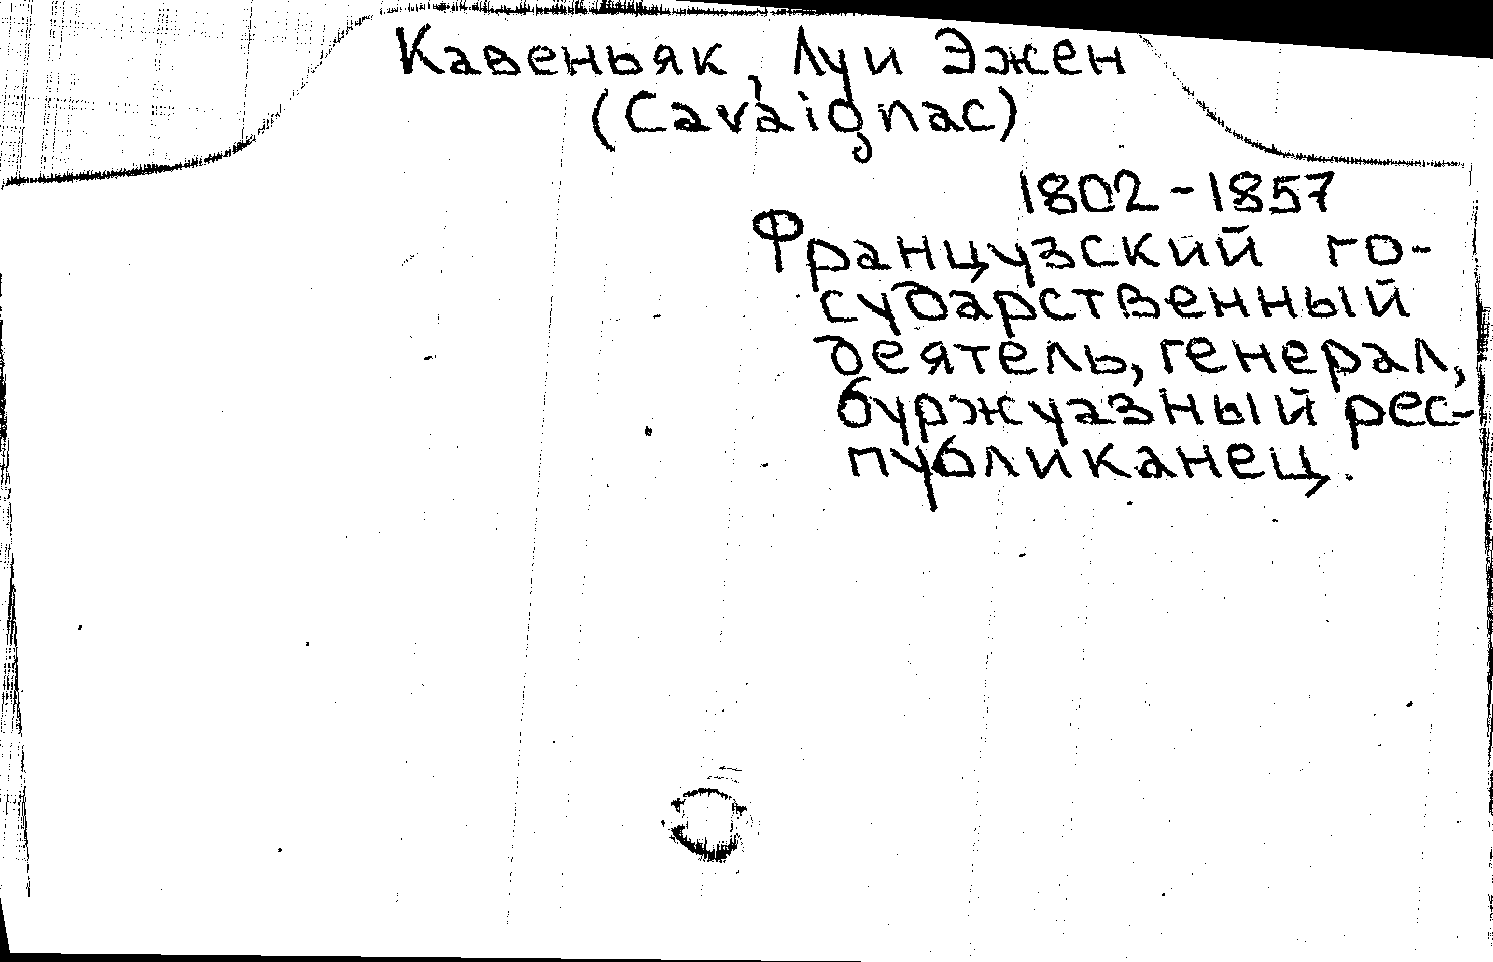 Кавеньяк, Луи Эжен
(Cavaignac)
1802-1857
Французский го-
сударственный
деятель, генерал,
буржуазный рес-
публиканец.